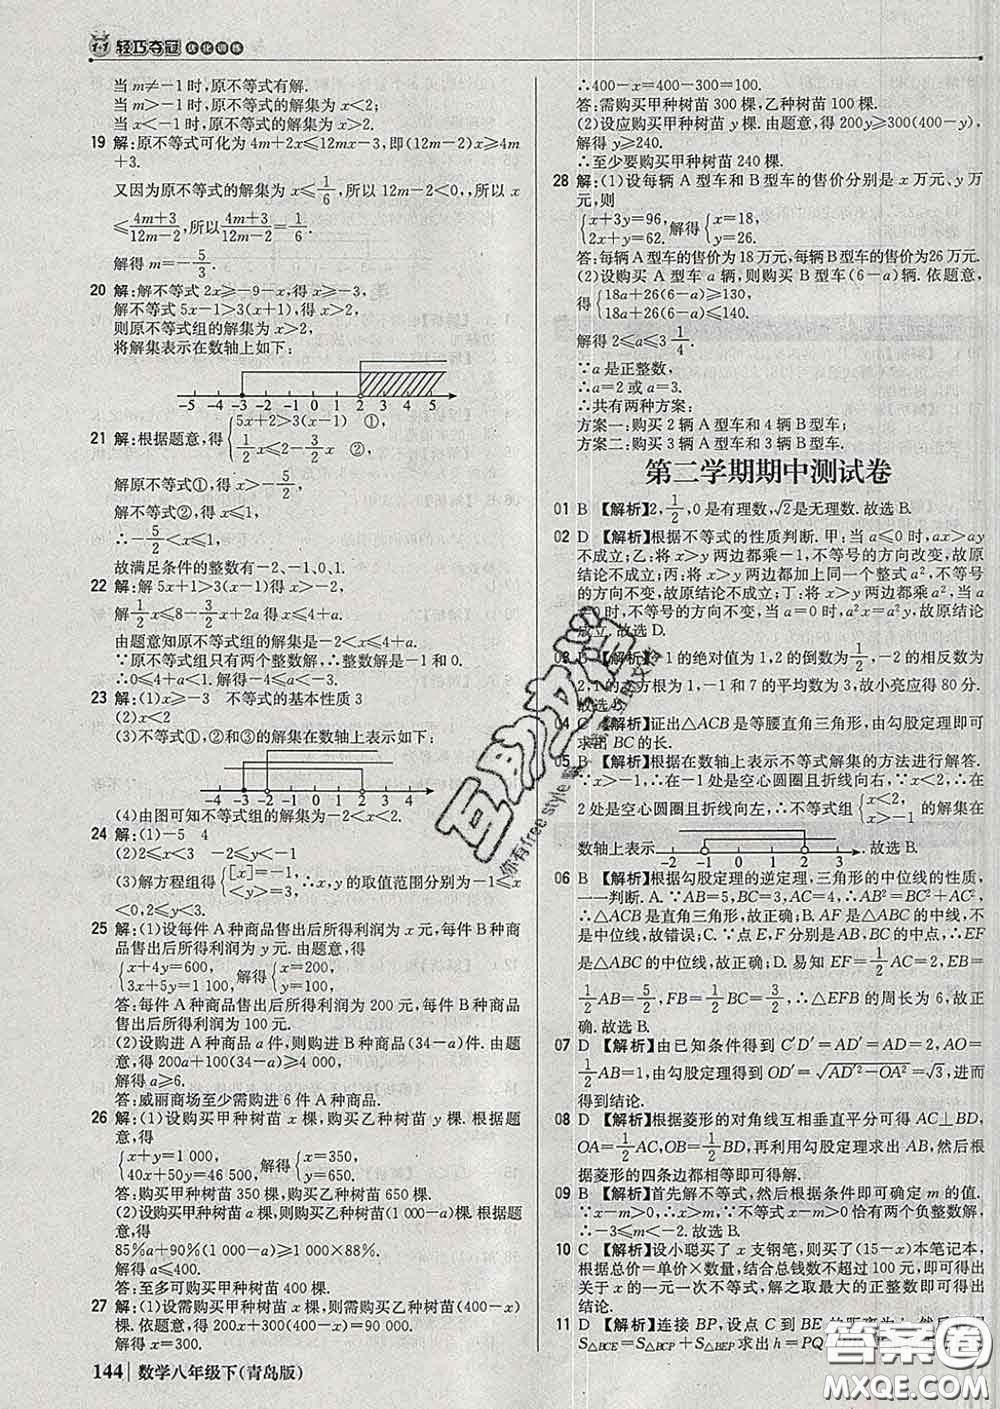 1+1 轻巧夺冠 优化训练
当 m≠-1 时,原不等式有解.
当 m>-1 时,原不等式的解集为 x<2;
当 x<-1 时,原不等式的解集为 x>2.
19 解:原不等式可化为 4m+2x≤12mx-3,即(12m-2)x≥4m
+3.
又因为原不等式的解集为 x≤1/6,所以 12m-2<0,所以 x
≤(4m+3)/(12m-2),所以(4m+3)/(12m-2)=1/6.
解得 m=-5/3.
20 解:解不等式 2x≥-9-x,得 x≥-3,
解不等式 5x-1>3(x+1),得 x>2,
则原不等式组的解集为 x>2,
将解集表示在数轴上如下:
-5 -4 -3 -2 -1 0 1 2 3 4 5
21 解:根据题意,得{5x+2>3(x-1) ①,
1/2x≤2-3/2x ②,
解原不等式①,得 x>-5/2,
解不等式②,得 x≤1,
∴-5/2<x≤1,
故满足条件的整数有-2、-1、0、1.
22 解:解 5x+1>3(x-1)得 x>-2,
解1/2x≤8-3/2x+2a 得 x≤4+a.
由题意知原不等式组的解集是-2<x≤4+a.
∵原不等式组只有两个整数解,∴整数解是-1 和 0.
∴0≤4+a<1.解得-4≤a<-3.
23 解:(1)x≥-3 不等式的基本性质 3
(2)x<2
(3)不等式①,②和③的解集在数轴上表示如下:
-4 -3 -2 -1 0 1 2 3 4
(4)由图可知不等式组的解集为-2<x<2.
24 解:(1)-5 4
(2)2≤x<3 -2≤y<-1
(3)解方程组得{[x]=-1,
<y>=3, ∴x,y 的取值范围分别为-1≤x
<0,2≤y<3.
25 解:(1)设每件 A 种商品售出后所得利润为 x 元,每件 B 种商
品售出后所得利润为 y 元.由题意,得
{x+4y=600,
3x+5y=1 100, 解得{x=200,
y=100.
答:每件 A 种商品售出后所得利润为 200 元,每件 B 种商品
售出后所得利润为 100 元.
(2)设购进 A 种商品 a 件,则购进 B 种商品(34-a)件.由题
意,得 200a+100(34-a)≥4 000,
解得 a≥6.
答:威丽商场至少需购进 6 件 A 种商品.
26 解:(1)设购买甲种树苗 x 棵,购买乙种树苗 y 棵.根据题
意,得
{x+y=1 000,
40x+50y=46 500, 解得{x=350,
y=650.
答:购买甲种树苗 350 棵,购买乙种树苗 650 棵.
(2)设购买甲种树苗 a 棵,则购买乙种树苗(1 000-a)棵.根据题
意,得
85%a+90%(1 000-a)≥1 000×88%.
解得 a≤400.
答:至多可购买甲种树苗 400 棵.
27 解:(1)设需购买甲种树苗 x 棵,则需购买乙种树苗(400-x)
棵.依题意,得 200x+300(400-x)=90 000,
解得 x=300.
144 数学八年级下(青岛版)
∴400-x=400-300=100.
答:需购买甲种树苗 300 棵,乙种树苗 100 棵.
(2)设应购买甲种树苗 y 棵.由题意,得 200y≥300(400-y),
解得 y≥240.
∴至少要购买甲种树苗 240 棵.
28 解:(1)设每辆 A 型车和 B 型车的售价分别是 x 万元、y 万
元,则
{x+3y=96,
2x+y=62. 解得{x=18,
y=26.
答:每辆 A 型车的售价为 18 万元,每辆 B 型车的售价为 26 万元.
(2)设购买 A 型车 a 辆,则购买 B 型车(6-a)辆.依题意,
得{18a+26(6-a)≥130,
18a+26(6-a)≤140,
解得 2≤a≤3 1/4.
∵a 是正整数,
∴a=2 或 a=3.
∴共有两种方案:
方案一:购买 2 辆 A 型车和 4 辆 B 型车;
方案二:购买 3 辆 A 型车和 3 辆 B 型车.
第二学期期中测试卷
01 B 【解析】2,1/2,0 是有理数,√2是无理数.故选 B.
02 D 【解析】根据不等式的性质判断.甲:当 a≤0 时,ax>ay
不成立;乙:将 x>y 两边都乘-1,不等号的方向改变,故原
结论不成立;丙:将 x>y 两边都加上同一个整式 a²,不等号
的方向不变,故原结论不成立;丁:将 x>y 两边都乘 a²,当 a
≠0 时,不等号的方向不变,当 a=0 时,a²x=a²y,故原结论
成立.故选 D.
03 B 【解析】-1 的绝对值为 1,2 的倒数为1/2,-2 的相反数为
2,1 的立方根为 1,-1 和 7 的平均数为 3,故小亮应得 80 分.
故选 B.
04 C 【解析】证出△ACB 是等腰直角三角形,由勾股定理即可
求出 BC 的长.
05 B 【解析】根据在数轴上表示不等式解集的方法进行解答.
∵x>-1,∴在-1 处是空心圆圈且折线向右,∵x<2,∴在
2 处是空心圆圈且折线向左,∴不等式组{x<2,
x>-1 的解集在
数轴上表示 -2 -1 0 1 2 3 .故选 B.
06 B 【解析】根据勾股定理的逆定理,三角形的中位线的性质,
一一判断.A.∵AB=5,BC=3,AC=4,∴AB²=BC²+AC²,
∴△ACB 是直角三角形,故正确;B.AF 是△ABC 的中线,不
是中位线,故错误;C.∵点 E,F 分别是 AB,BC 的中点,∴EF
是△ABC 的中位线,故正确;D.易知 EF=1/2AC=2,BE=
1/2AB=5/2,FB=1/2BC=3/2,∴△EFB 的周长为 6,故正
确.故选 B.
07 D 【解析】由已知条件得到 C′D′=AD′=AD=2,AO=
1/2AB=1,由勾股定理得到 OD′=√(AD′²-OA²)=√3,进而
得到结论.
08 D 【解析】根据菱形的对角线互相垂直平分可得 AC⊥BD,
OA=1/2AC,OB=1/2BD,再利用勾股定理求出 AB,然后根
据菱形的四条边都相等即可得解.
09 B 【解析】首先解不等式,然后根据条件即可确定 m 的值.
∵x-m>0,∴x>m,∵不等式 x-m>0 恰有两个负整数解,
∴-3≤m<-2.故选 B.
10 C 【解析】设小聪买了 x 支钢笔,则买了(15-x)本笔记本,
根据总价=单价×数量,结合总钱数不超过 100 元,即可得出
关于 x 的一元一次不等式,解之取最大的正整数即可得出
结论.
11 D 【解析】连接 BP,设点 C 到 BE 的距离为 h,然后
S△BCE=S△BCP+S△BEP求出 h=PQ
互助文档
你有free style
答案圈
MXQE.COM